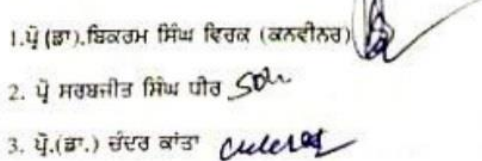 1.ਪ੍ਰੋ (ਡਾ).ਬਿਕਰਮ ਸਿੰਘ ਵਿਰਕ (ਕਨਵੀਨਰ)
2. ਪ੍ਰੋ ਸਰਬਜੀਤ ਸਿੰਘ ਧੀਰ
3. ਪ੍ਰੋ.(ਡਾ.) ਚੰਦਰ ਕਾਂਤਾ